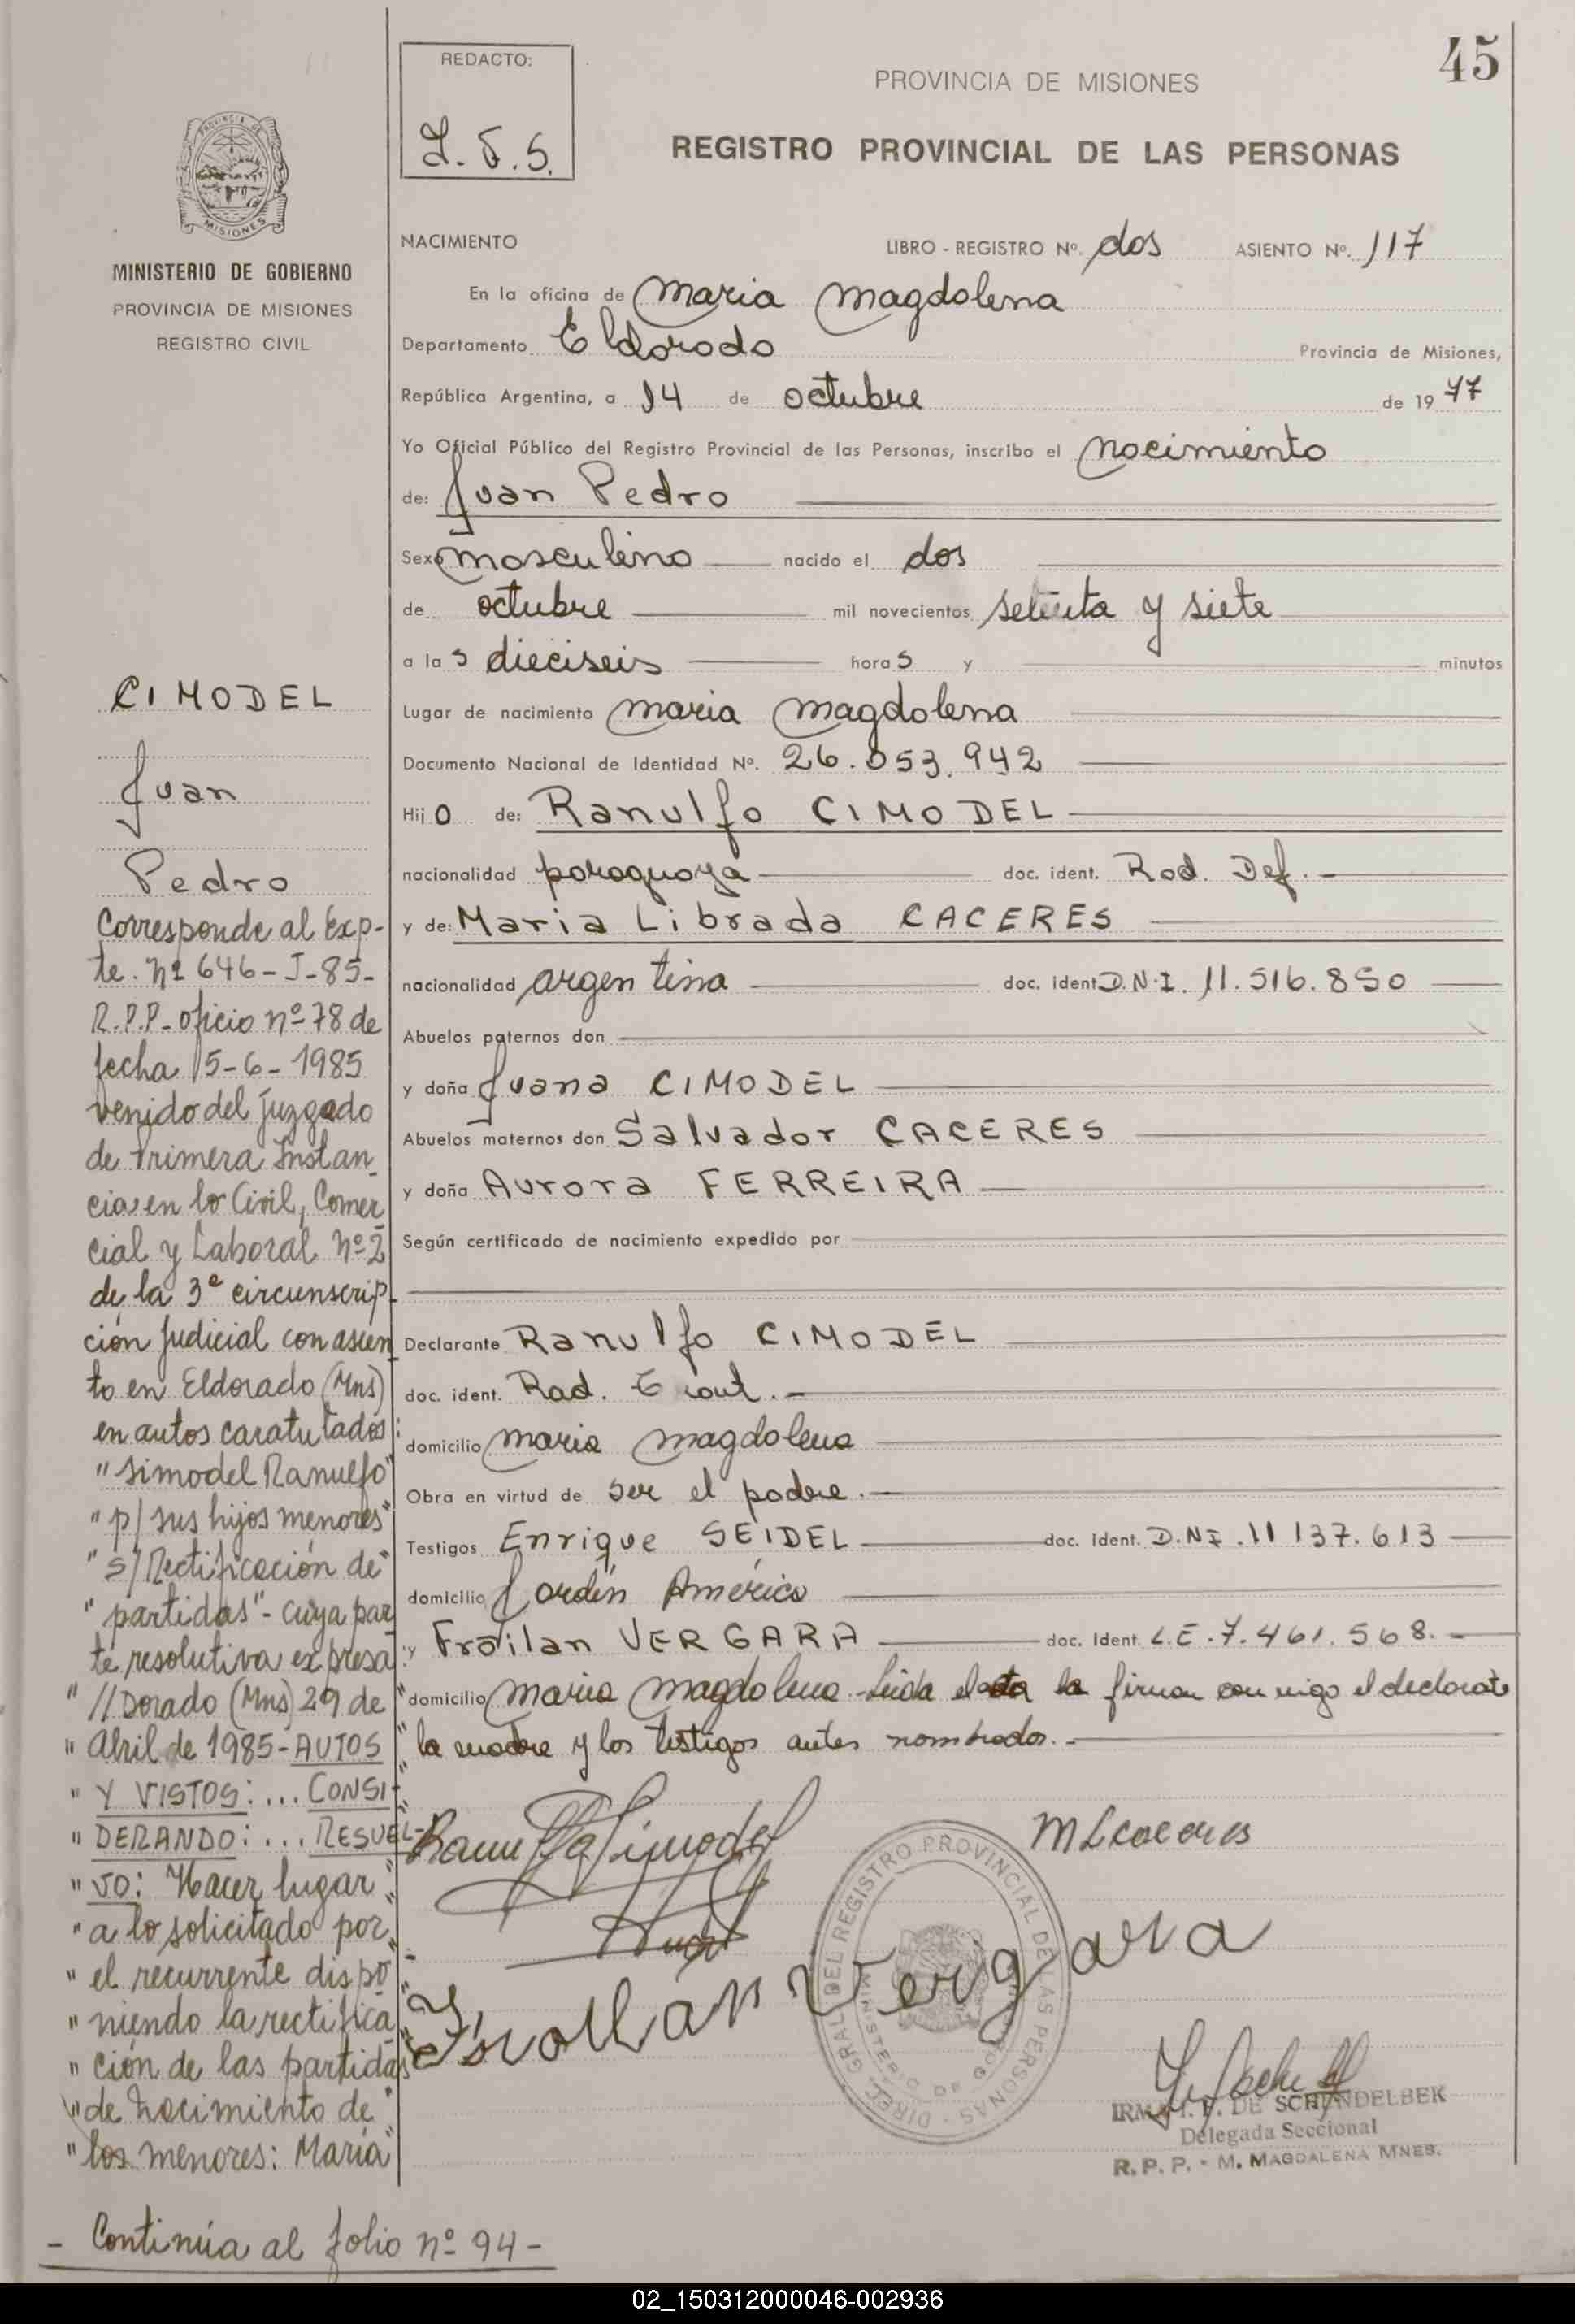 45
REDACTO:
PROVINCIA DE MISIONES
REGISTRO PROVINCIAL DE LAS PERSONAS
PROVINCIA DE
MISIONES
MINISTERIO DE GOBIERNO
PROVINCIA DE MISIONES
REGISTRO CIVIL
NACIMIENTO LIBRO - REGISTRO Nº. dos ASIENTO Nº. 117
En la oficina de Maria Magdalena
Departamento Eldorado Provincia de Misiones,
República Argentina, a 14 de octubre de 19 77
Yo Oficial Público del Registro Provincial de las Personas, inscribo el nacimiento
de: Juan Pedro
Sexo masculino nacido el dos
de octubre mil novecientos setenta y siete
a las dieciseis horas y minutos
Lugar de nacimiento Maria Magdalena
Documento Nacional de Identidad Nº. 26.053.942
Hijo de: Ranulfo CIMODEL
nacionalidad paraguaya doc. ident. Rad. Def.-
y de: Maria Librada CACERES
nacionalidad argentina doc. ident. D.N.I. 11.516.850
Abuelos paternos don
y doña Juana CIMODEL
Abuelos maternos don Salvador CACERES
y doña Aurora FERREIRA
Según certificado de nacimiento expedido por
Declarante Ranulfo CIMODEL
doc. ident. Rad.
domicilio Maria Magdalena
Obra en virtud de ser el padre.-
Testigos Enrique SEIDEL doc. ident. D.N.I. 11 137.613
domicilio Jardín América
y Froilan VERGARA doc. ident. L.E. 7.461.568.-
domicilio Maria Magdalena.- Leida el acta la firman conmigo el declarante
la madre y los testigos antes nombrados.-
Ranulfo Simodel
MLcaceres
Froilan Vergara
DIREC. GRAL DEL REGISTRO PROVINCIAL DE LAS PERSONAS -
MINISTERIO DE GOB
DE SCHENDELBEK
Delegada Seccional
R. P. P. - M. MAGDALENA MNES.
CIMODEL
Juan
Pedro
Corresponde al Exp-
te. Nº 646-J-85-
R.P.P- oficio nº 78 de
fecha 15-6-1985
venido del Juzgado
de Primera Instan
cia en lo Civil, Comer
cial y Laboral Nº 2
de la 3ª circunscrip
ción Judicial con asien
to en Eldorado (Mns)
en autos caratulados:
"Simodel Ranulfo"
"p/ sus hijos menores"
"s/ Rectificación de"
"partidas"- cuya par
te resolutiva expresa:
"//Dorado (Mns) 29 de"
"Abril de 1985- AUTOS"
"Y VISTOS: ... CONSI-"
"DERANDO: ... RESUEL-"
"VO: Hacer lugar"
"a lo solicitado por"
"el recurrente dispo"
"niendo la rectifica"
"ción de las partidas"
"de nacimiento de"
"los menores: María"
- Continúa al folio nº 94 -
02_150312000046-002936